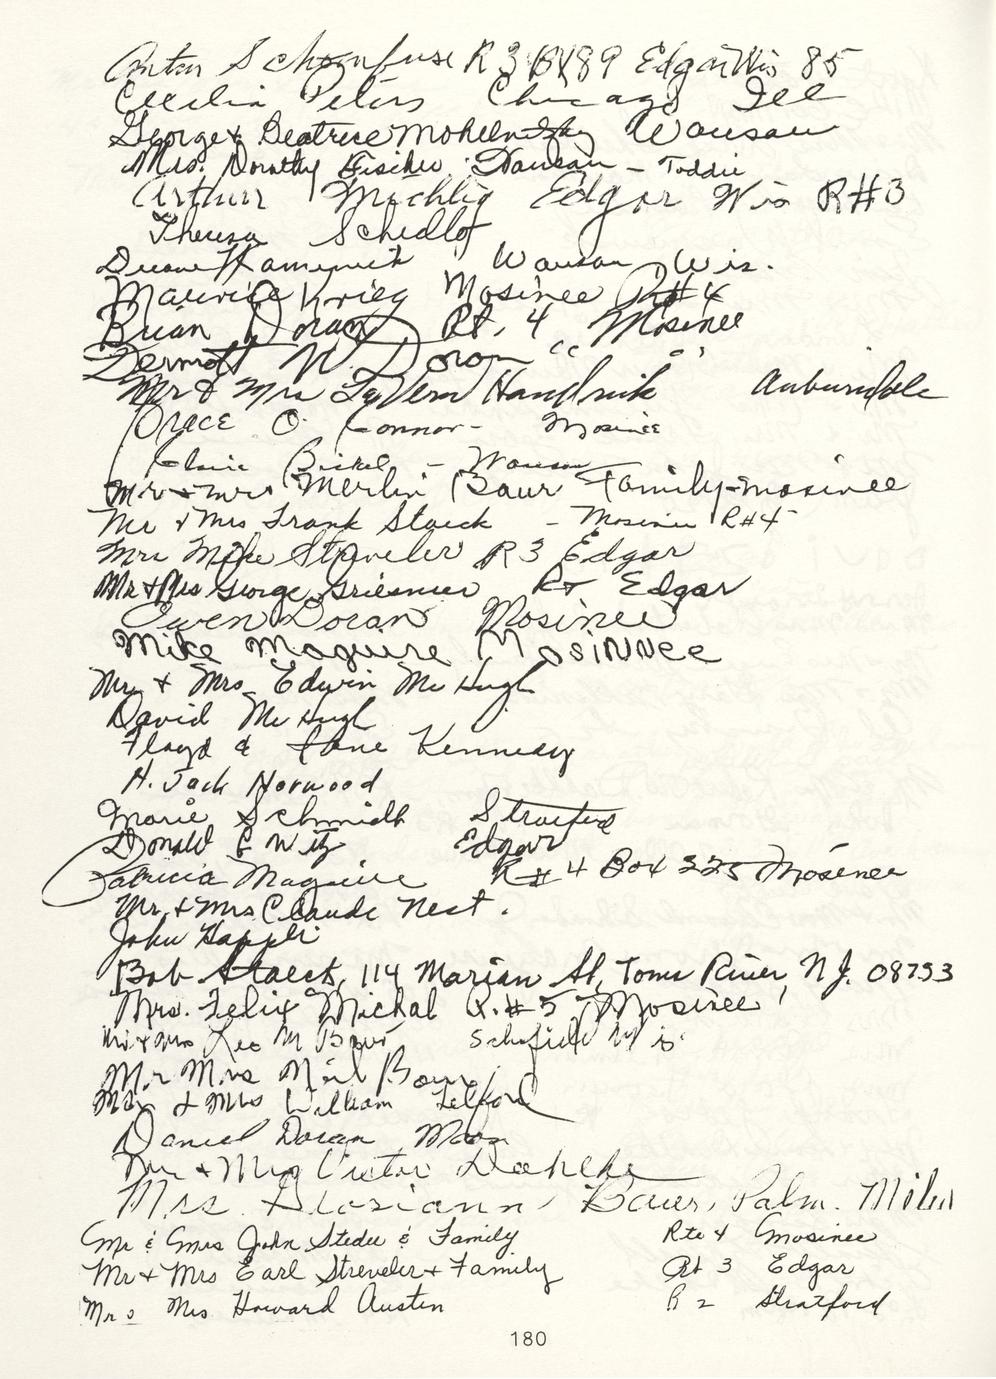 Anton Schoenfuss R 3 BX89 Edgar Wis 85
Cecelia Peters Chicago Ill
George & Beatrice Wausau
Mrs. Dorothy Fischer Wausau - Toddie
Arthur Michlig Edgar Wis R#3
Theresa Schedlo
Duane Kaminski Wausau Wis.
Maurice Krieg Mosinee Rt#4
Brian Doran Rt. 4 Mosinee
Dermott W Doran " "
Mr & Mrs LaVern Handrick Auburndale
Grace O Connor - Mosinee
Elaine Bickel - Wausau
Mr & Mrs Merlin Baur Family - Mosinee
Mr & Mrs Frank Staeck - Mosinee R#4
Mrs Mike Streveler R3 Edgar
Mr & Mrs George Griesmer Rt Edgar
Owen Doran Mosinee
Mike Maguire MosiNNee
Mr & Mrs Edwin McHugh
David McHugh
Floyd & Jane Kennedy
H. Jack Norwood
Marie Schmidt Stratford
Donald E Witz Edgar
Patricia Maguire R#4 Box 325 Mosinee
Mr. & Mrs Claude Nest.
John Happli
Bob Staeck, 114 Marian St, Toms River, N.J. 08753
Mrs. Felix Michal R.#5 Mosinee
Mr & Mrs Leo M Baur Schofield Wis.
Mr Mrs Neil Baur
Mr & Mrs William Telford
Daniel Doran Mosn
Mr & Mrs Victor Dahlke
Mrs. Floriann Baur, Palm.
Mr & Mrs John Stedu & Family Rte 4 Mosinee
Mr & Mrs Earl Streveler & Family Rt 3 Edgar
Mr & Mrs Howard Austin R 2 Stratford
180